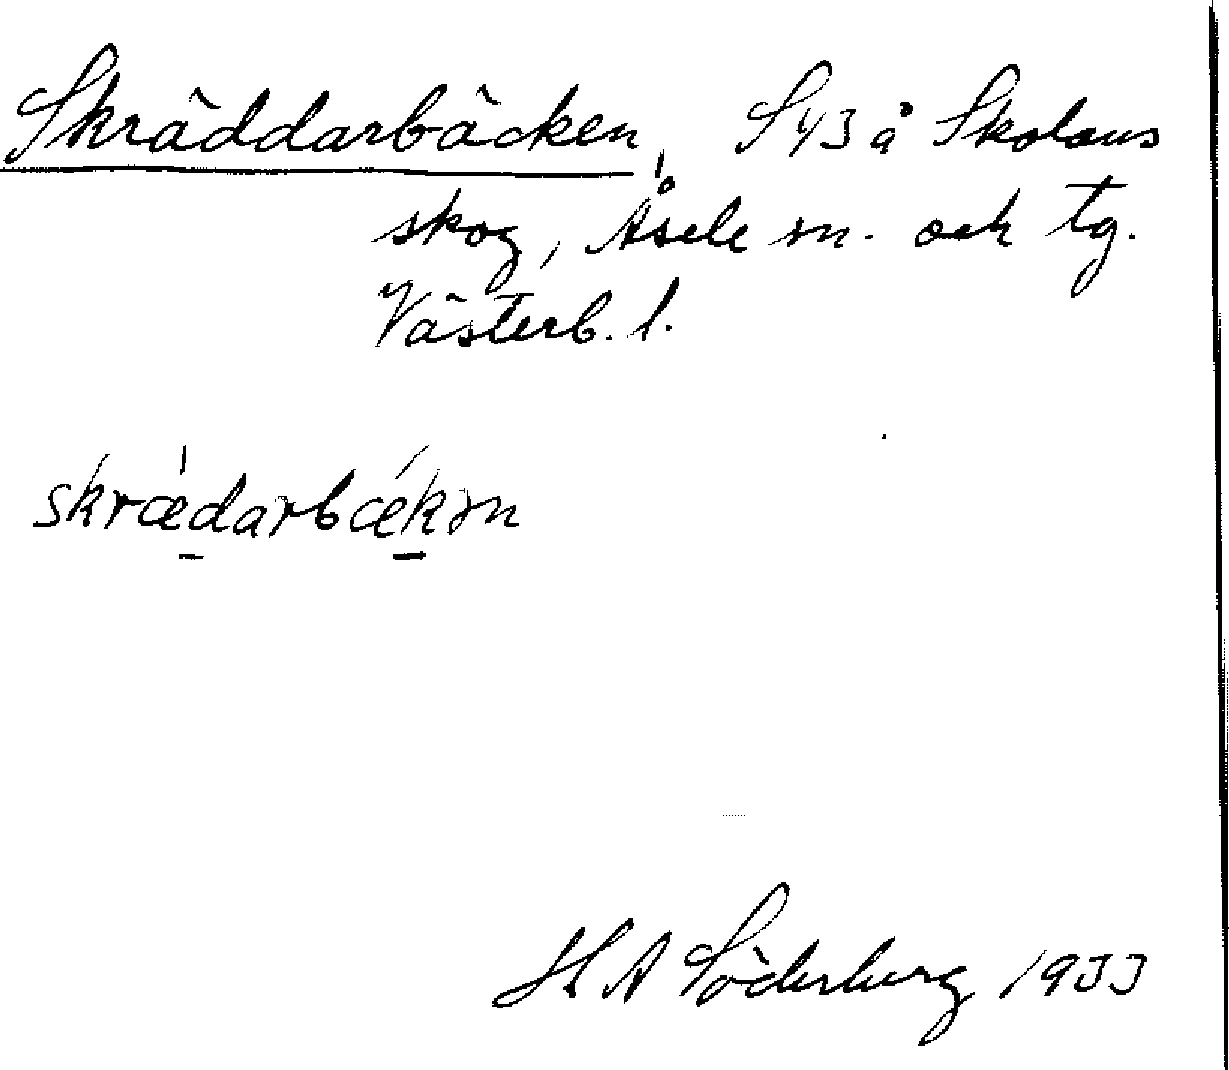 Skräddarbäcken, S 43 å Skolans
skog, Åsele sn. och tg.
Västerb. l.
skrædarbækən
H A Söderberg 1933